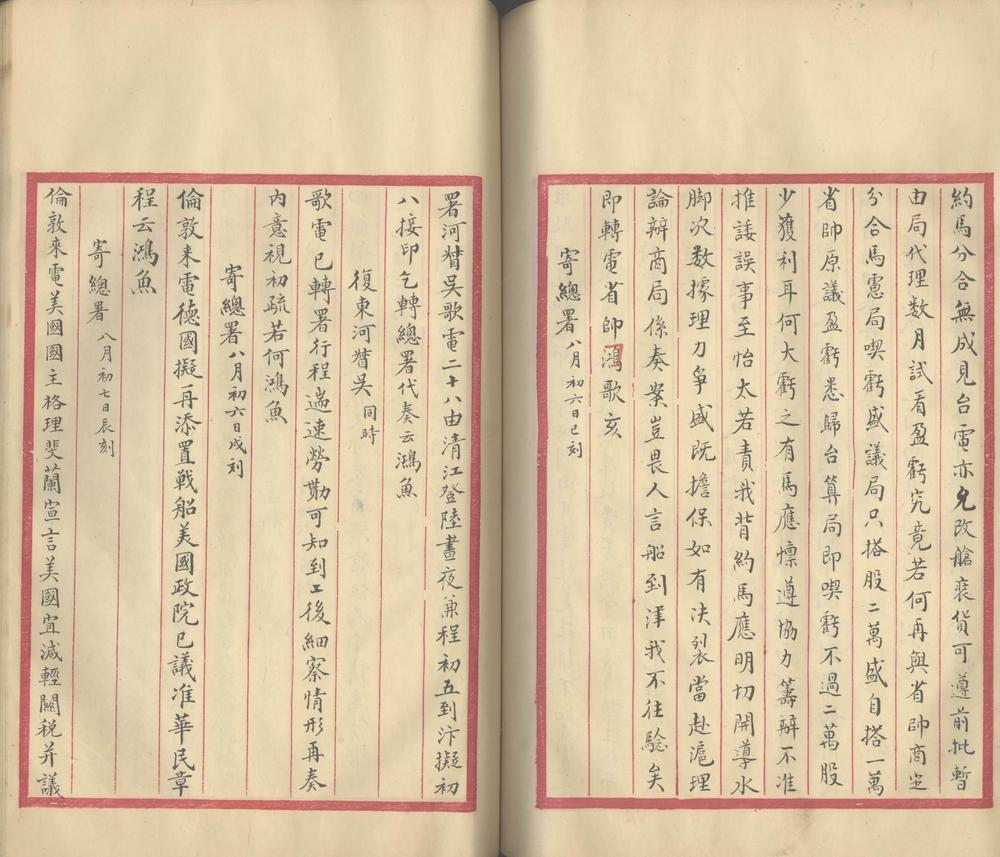 約馬分合無成見台電亦允改艙裝貨可遵前批暫
由局代理数月試看盈虧究竟若何再與省帥商定
分合馬慮局喫虧盛議局只搭股二萬盛自搭一萬
省帥原議盈虧悉歸台算局即喫虧不過二萬股
少獲利耳何大虧之有馬應懍遵協力籌辦不准
推諉誤事至怡太若責我背約馬應明切開導水
脚次数據理力爭盛既擔保如有決裂當赴滬理
論辦商局係奏案豈畏人言船到津我不往驗矣
即轉電省帥鴻歌亥
寄總署八月初六日巳刻
署河督吳歌電二十八由清江登陸晝夜兼程初五到汴擬初
八接印乞轉總署代奏云鴻魚
復東河督吳同時
歌電已轉署行程遄速勞勩可知到工後細察情形再奏
內意視初疏若何鴻魚
寄總署八月初六日戌刻
倫敦来電德國擬再添置戰船美國政院已議准華民章
程云鴻魚
寄總署八月初七日辰刻
倫敦來電美國國主格理斐蘭宣言美國宜減輕關税并議